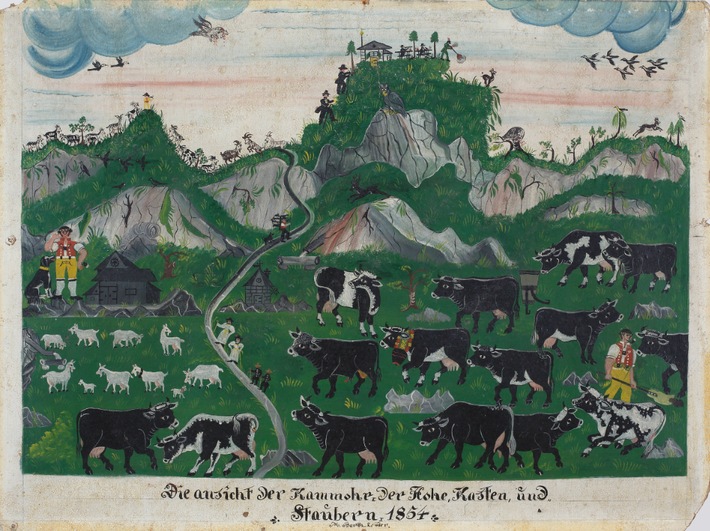 Die ansicht der Kammohr, der Hohe, Kasten, und,
Staubern, 1854